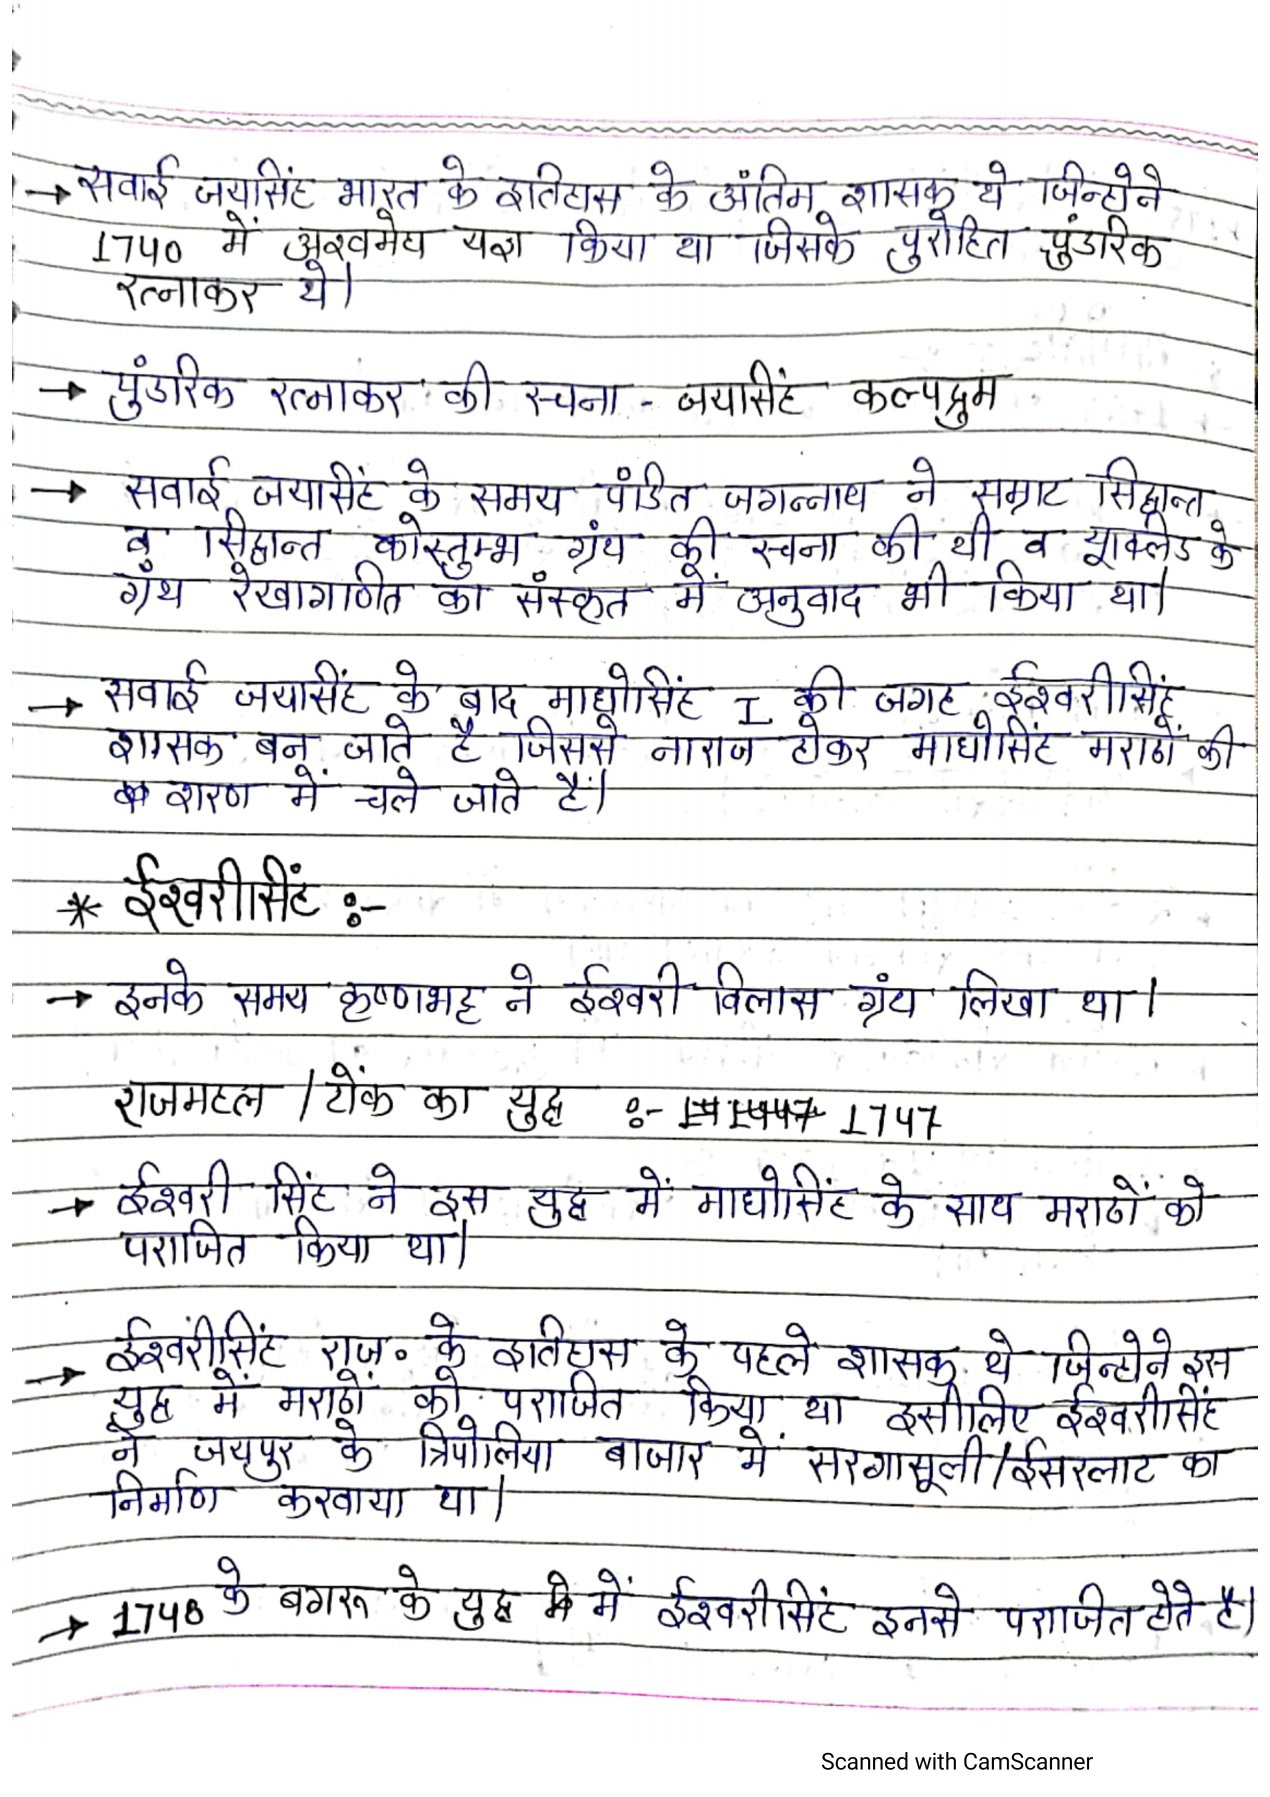 → सवाई जयसिंह भारत के इतिहास के अंतिम शासक थे जिन्होने
1740 में अश्वमेध यज्ञ किया था जिसके पुरोहित पुंडरिक
रत्नाकर थे।
→ पुंडरिक रत्नाकर की रचना - जयसिंह कल्पद्रुम
→ सवाई जयसिंह के समय पंडित जगन्नाथ ने सम्राट सिद्धान्त
व सिद्धान्त कोस्तुम्भ ग्रंथ की रचना की थी व यूक्लिड के
ग्रंथ रेखागणित का संस्कृत में अनुवाद भी किया था।
→ सवाई जयसिंह के बाद माधोसिंह I की जगह ईश्वरीसिंह
शासक बन जाते है जिससे नाराज होकर माधोसिंह मराठों की
शरण में चले जाते हैं।
* ईश्वरीसिंह :-
→ इनके समय कृष्णभट्ट ने ईश्वरी विलास ग्रंथ लिखा था।
राजमहल / टोंक का युद्ध :- 1747
→ ईश्वरी सिंह ने इस युद्ध में माधोसिंह के साथ मराठों को
पराजित किया था।
→ ईश्वरीसिंह राज० के इतिहास के पहले शासक थे जिन्होने इस
युद्ध में मराठों को पराजित किया था इसीलिए ईश्वरीसिंह
ने जयपुर के त्रिपोलिया बाजार में सरगासूली/ईसरलाट का
निर्माण करवाया था।
→ 1748 के बगरू के युद्ध में ईश्वरीसिंह इनसे पराजित होते है।
Scanned with CamScanner